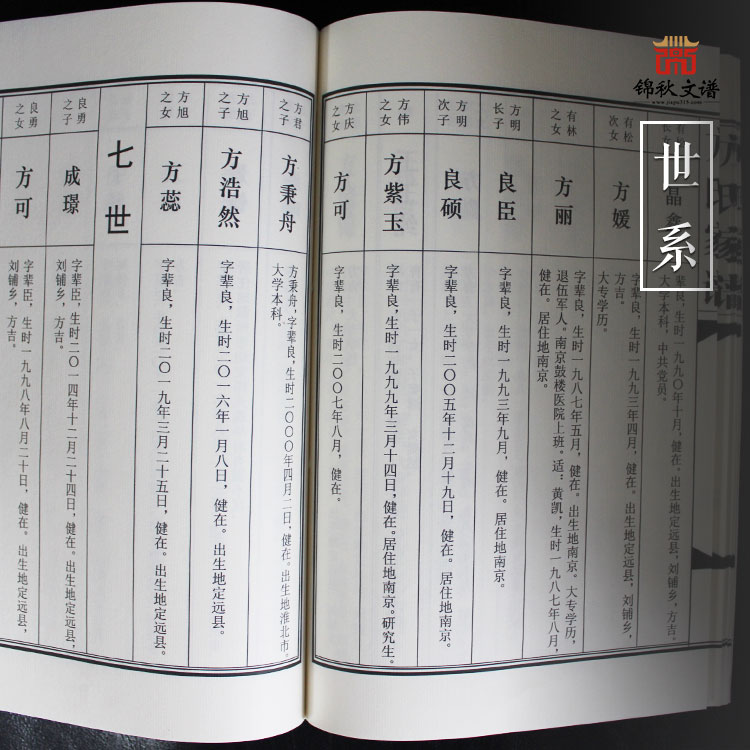 锦秋文谱
www.jiapu315.com
世系
方氏家谱
有林
长子
晶鑫
字辈良，生时一九九〇年十月，健在。出生地定远县，刘铺乡，方吉。
大学本科，中共党员。
有松
次女
方媛
字辈良，生时一九九三年四月，健在。出生地定远县，刘铺乡，
方吉。
大专学历。
有林
之女
方丽
字辈良，生时一九八七年五月，健在。出生地南京。大专学历，
退伍军人。南京鼓楼医院上班。适：黄凯，生时一九八七年八月，
健在。居住地南京。
方明
长子
良臣
字辈良，生时一九九三年九月，健在。居住地南京。
方明
次子
良硕
字辈良，生时二〇〇五年十二月十九日，健在。居住地南京。
方伟
之女
方紫玉
字辈良，生时一九九九年三月十四日，健在。居住地南京。研究生。
方庆
之女
方可
字辈良，生时二〇〇七年八月，健在。
方君
之子
方秉舟
方秉舟，字辈良，生时二〇〇〇年四月二日，健在。出生地淮北市。
大学本科。
方旭
之子
方浩然
字辈良，生时二〇一六年一月八日，健在。出生地定远县。
方旭
之女
方蕊
字辈良，生时二〇一九年三月二十五日，健在。出生地定远县。
七世
良勇
之子
成璟
字辈臣，生时二〇一四年十二月二十四日，健在。出生地定远县，
刘铺乡，方吉。
良勇
之女
方可
字辈臣，生时一九九八年八月二十日，健在。出生地定远县，
刘铺乡，方吉。